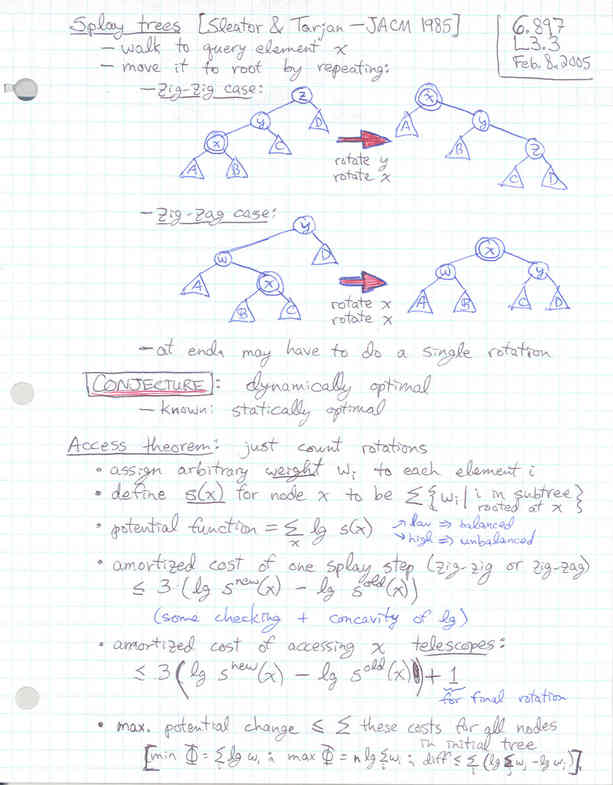 Splay trees [Sleator & Tarjan – JACM 1985]
6.897
L3.3
Feb. 8, 2005
– walk to query element x
– move it to root by repeating:
– Zig-Zig case:
z
y
D
x
C
A
B
rotate y
rotate x
x
A
y
B
z
C
D
– Zig-Zag case:
y
w
D
A
x
B
C
rotate x
rotate x
x
w
y
A
B
C
D
– at end, may have to do a single rotation
CONJECTURE: dynamically optimal
– known: statically optimal
Access theorem: just count rotations
• assign arbitrary weight wᵢ to each element i
• define s(x) for node x to be Σ{wᵢ | i in subtree rooted at x}
• potential function = Σₓ lg s(x)
↗ low ⇒ balanced
↘ high ⇒ unbalanced
• amortized cost of one splay step (zig-zig or zig-zag)
≤ 3·(lg s^new(x) – lg s^old(x))
(some checking + concavity of lg)
• amortized cost of accessing x telescopes:
≤ 3(lg s^new(x) – lg s^old(x)) + 1
for final rotation
• max. potential change ≤ Σ these costs for all nodes
in initial tree
[min Φ = Σᵢ lg wᵢ ; max Φ = n lg Σᵢ wᵢ ; diff ≤ Σᵢ (lg Σⱼ wⱼ – lg wᵢ)]